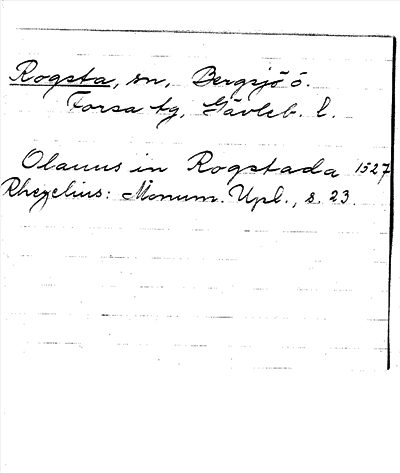 Rogsta, sn, Bergsjö o.
Forsa tg, Gävleb. l.
Olauus in Rogstada 1527
Rhezelius: Monum. Upl., s. 23.